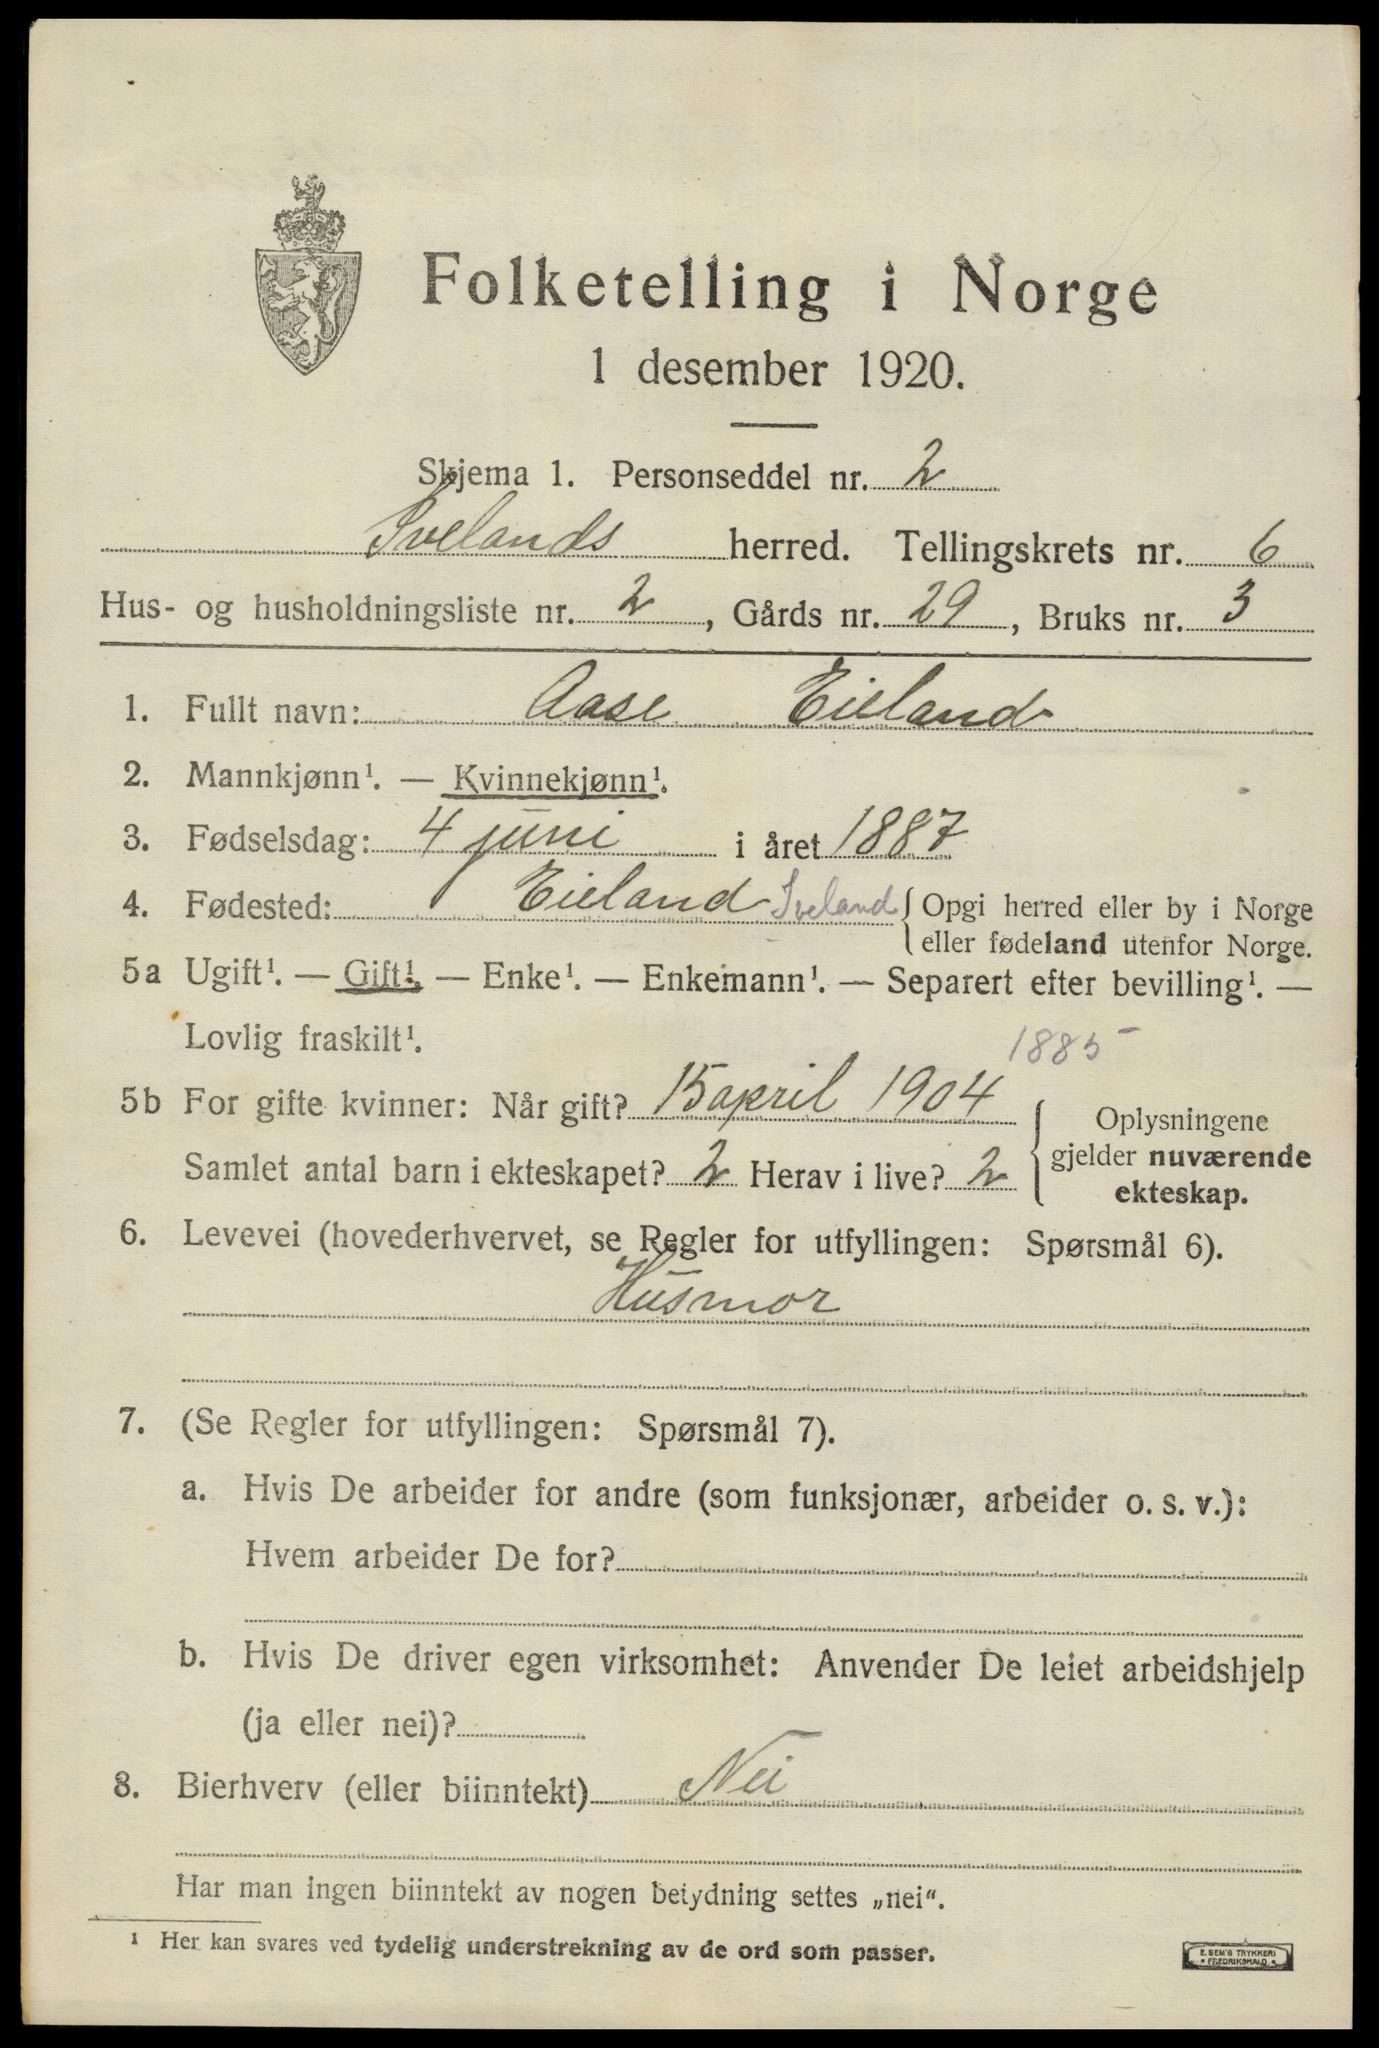 Folketelling i Norge
1 desember 1920.
Skjema 1. Personseddel nr. 2
Ivelands herred. Tellingskrets nr. 6
Hus- og husholdningsliste nr. 2, Gårds nr. 29, Bruks nr. 3
1. Fullt navn: Aase Eieland
2. Mannkjønn¹. — Kvinnekjønn¹.
3. Fødselsdag: 4 juni i året 1887
4. Fødested: Eieland Iveland { Opgi herred eller by i Norge
eller fødeland utenfor Norge.
5a Ugift¹. — Gift¹. — Enke¹. — Enkemann¹. — Separert efter bevilling¹. —
Lovlig fraskilt¹.
1885
5b For gifte kvinner: Når gift? 15 april 1904
Samlet antal barn i ekteskapet? 2 Herav i live? 2
Oplysningene
gjelder nuværende
ekteskap.
6. Levevei (hovederhvervet, se Regler for utfyllingen: Spørsmål 6).
Husmor
7. (Se Regler for utfyllingen: Spørsmål 7).
a. Hvis De arbeider for andre (som funksjonær, arbeider o. s. v.):
Hvem arbeider De for?
b. Hvis De driver egen virksomhet: Anvender De leiet arbeidshjelp
(ja eller nei)?
8. Bierhverv (eller biinntekt) Nei
Har man ingen biinntekt av nogen betydning settes „nei“.
¹ Her kan svares ved tydelig understrekning av de ord som passer.
E. SEM'S TRYKKERI
• FREDRIKSHALD •